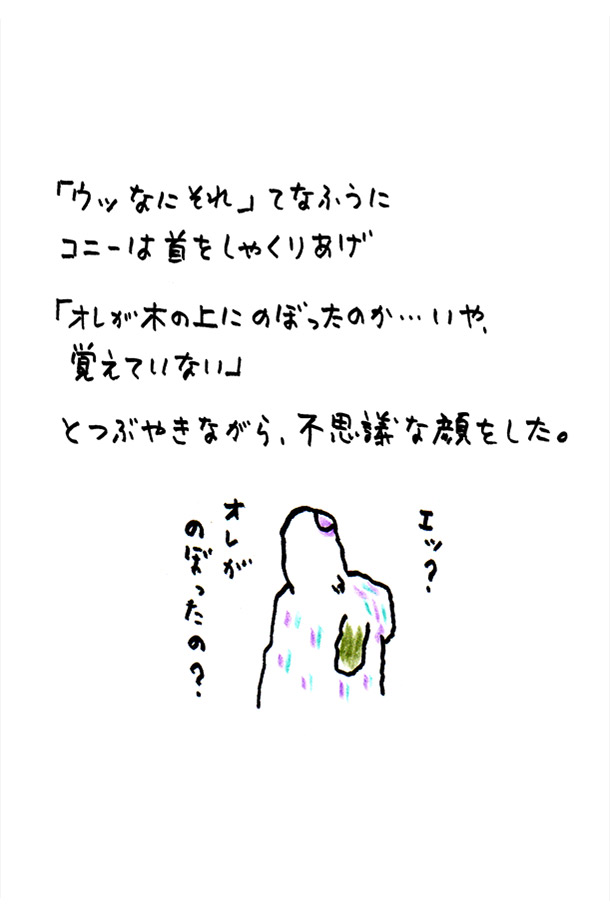 「ウッなにそれ」てなふうに
コニーは首をしゃくりあげ
「オレが木の上にのぼったのか…いや、
覚えていない」
とつぶやきながら、不思議な顔をした。
エッ?
オレが
のぼったの?